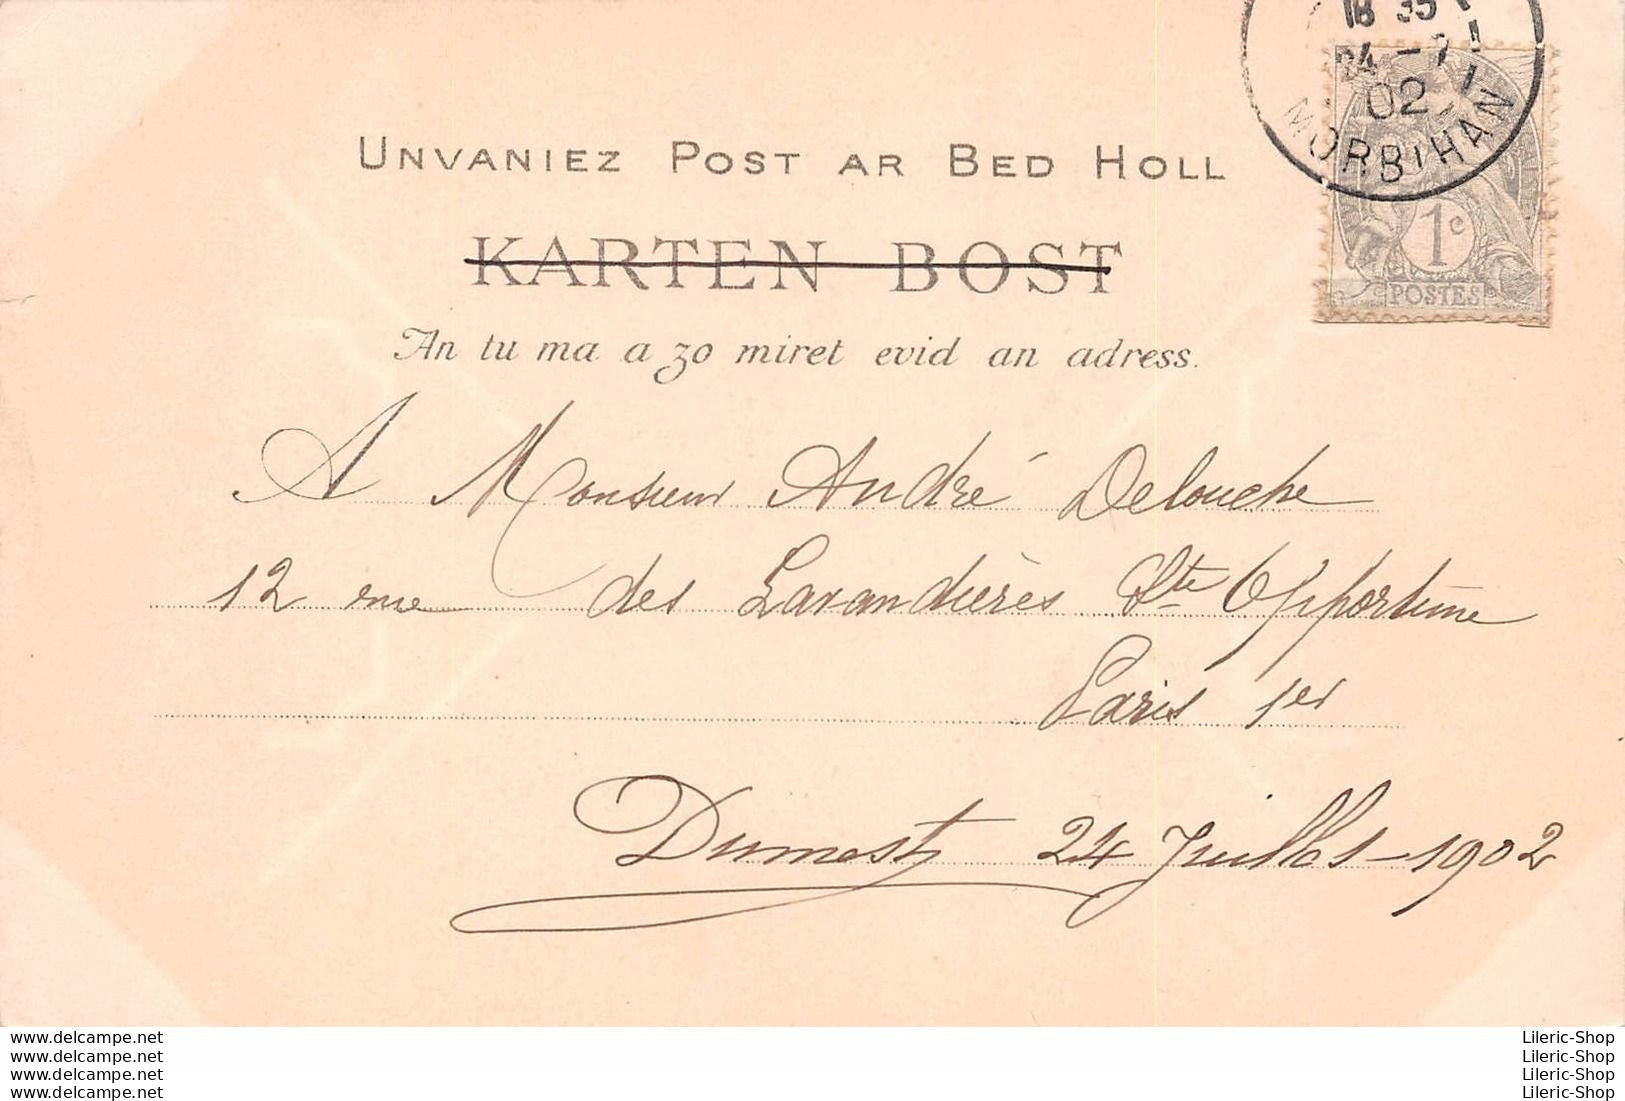 18 35
24 - 7
02
MORBIHAN
1c
POSTES
UNVANIEZ POST AR BED HOLL
KARTEN BOST
An tu ma a zo miret evid an adress.
A Monsieur André Delouche
12 rue des Lavandières Ste Opportune
Paris 1er
24 Juillet 1902
www.delcampe.net
www.delcampe.net
www.delcampe.net
www.delcampe.net
Lileric-Shop
Lileric-Shop
Lileric-Shop
Lileric-Shop